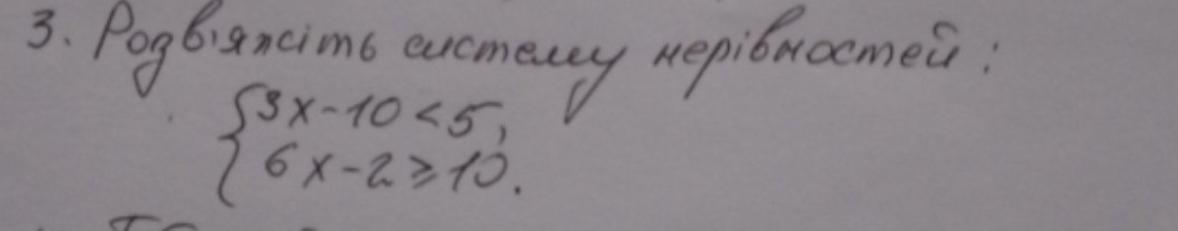 3. Розв'яжіть систему нерівностей:
{3x-10<5,
{6x-2≥10.